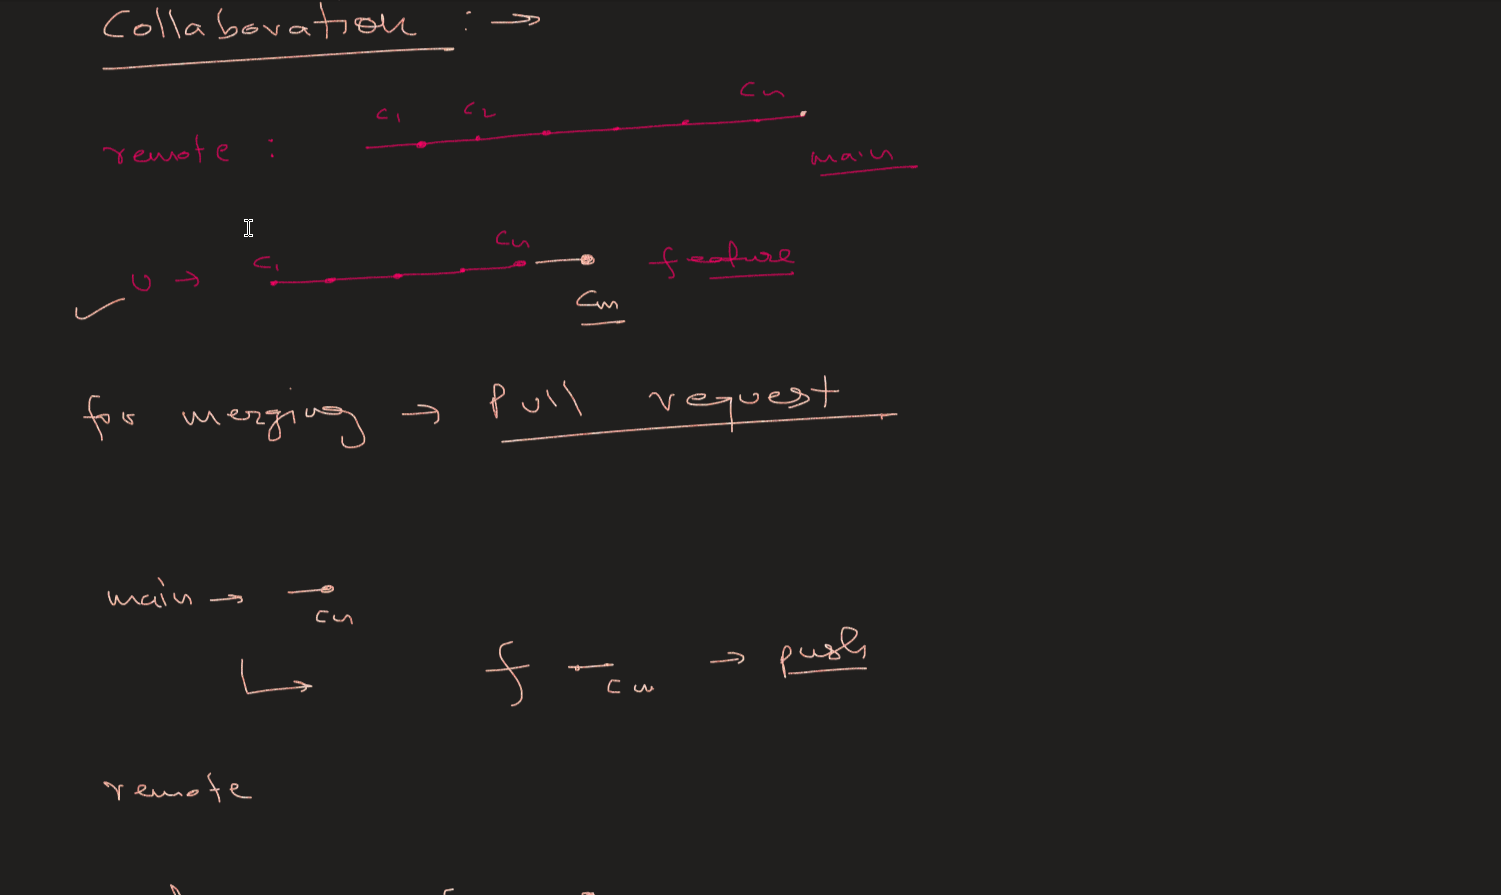 Collaboration : →
c1 c2 cn
remote :
main
c1 cn feature
U →
cm
for merging → Pull request
main →
cn
f → push
remote